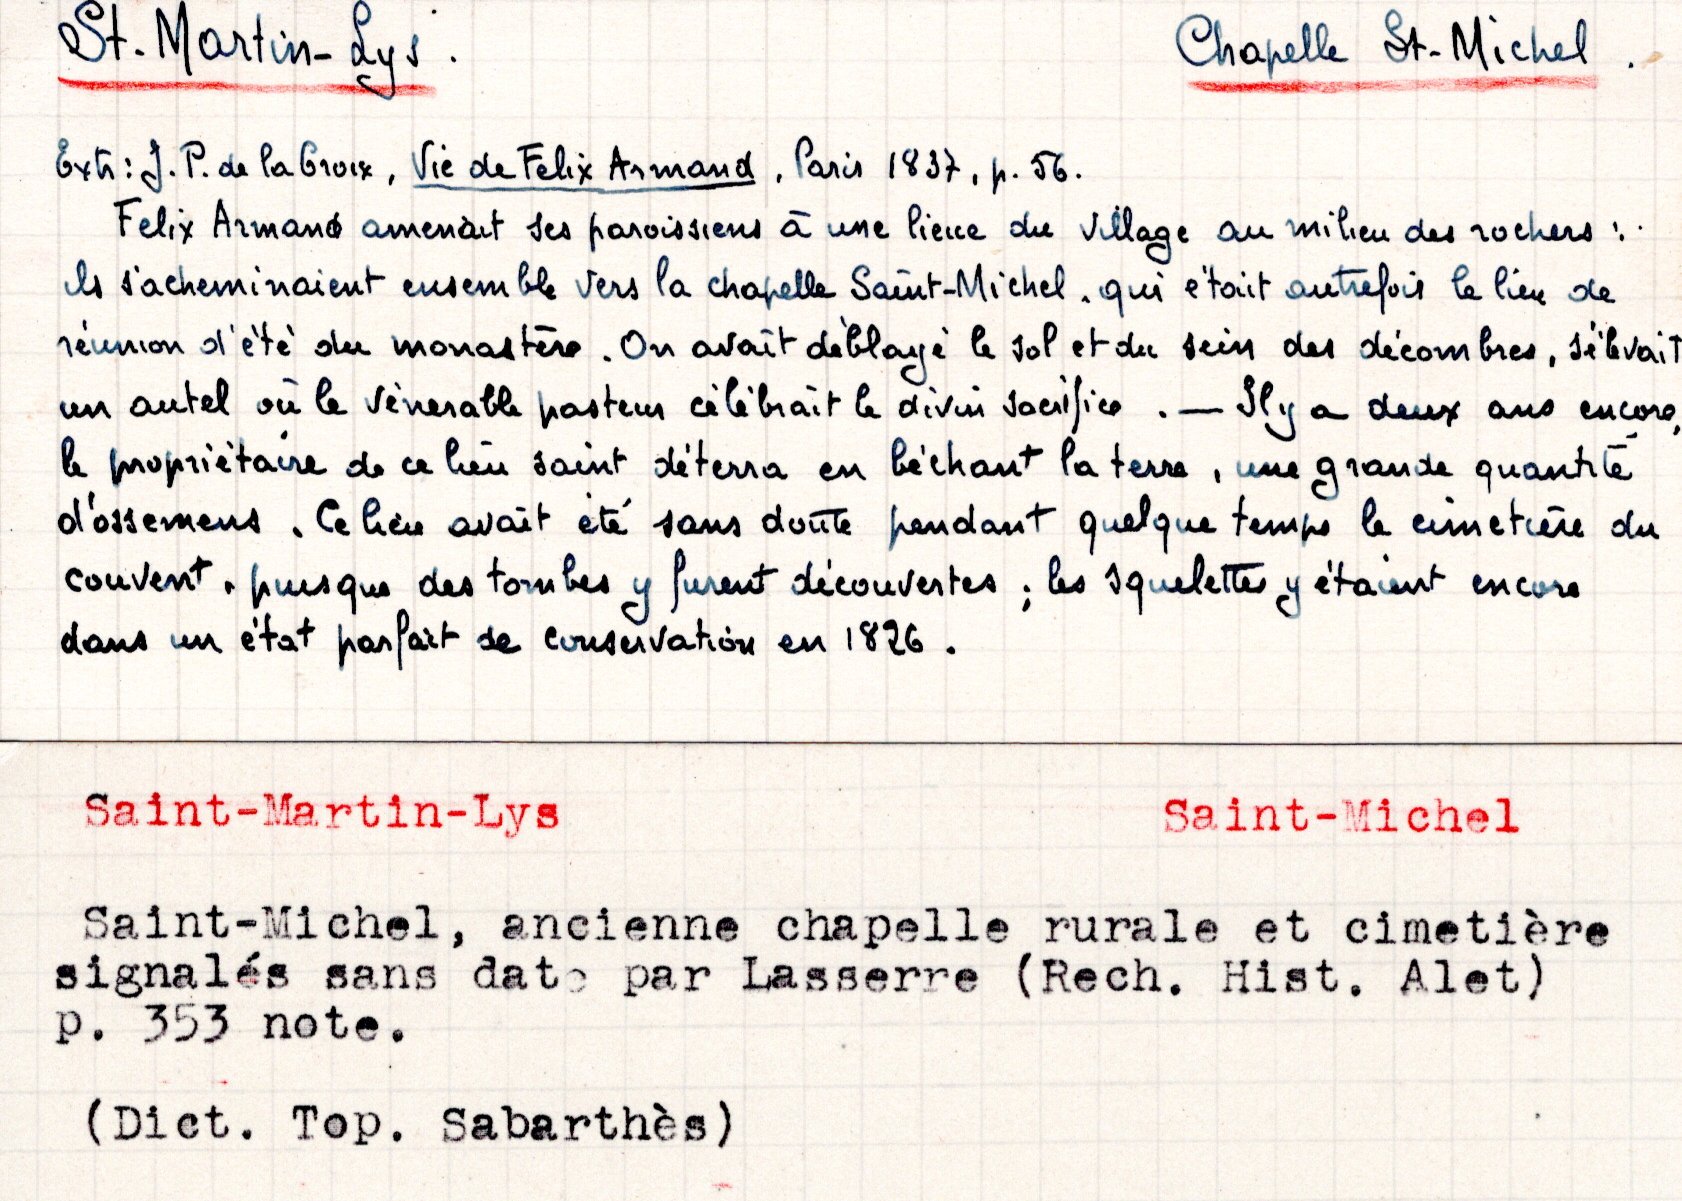 St-Martin-Lys. Chapelle St-Michel.
Extr: J. P. de la Croix, Vie de Felix Armand, Paris 1837, p. 56.
Felix Armand amenait ses paroissiens à une lieue du village au milieu des rochers :
ils s'acheminaient ensemble vers la chapelle Saint-Michel, qui était autrefois le lieu de
réunion d'été du monastère. On avait déblayé le sol et du sein des décombres, s'élevait
un autel où le vénerable pasteur célébrait le divin sacrifice. — Il y a deux ans encore,
le propriétaire de ce lieu saint déterra en bêchant la terre, une grande quantité
d'ossemens. Ce lieu avait été sans doute pendant quelque temps le cimetière du
couvent, puisque des tombes y furent découvertes ; les squelettes y étaient encore
dans un état parfait de conservation en 1826.
Saint-Martin-Lys Saint-Michel
Saint-Michel, ancienne chapelle rurale et cimetière
signalés sans date par Lasserre (Rech. Hist. Alet)
p. 353 note.
(Dict. Top. Sabarthès)